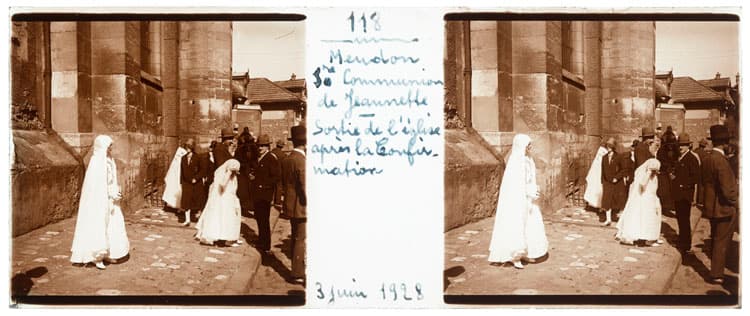 118
Meudon
Communion
de Jeannette
Sortie de l'église
après la Confir-
mation
3 juin 1928